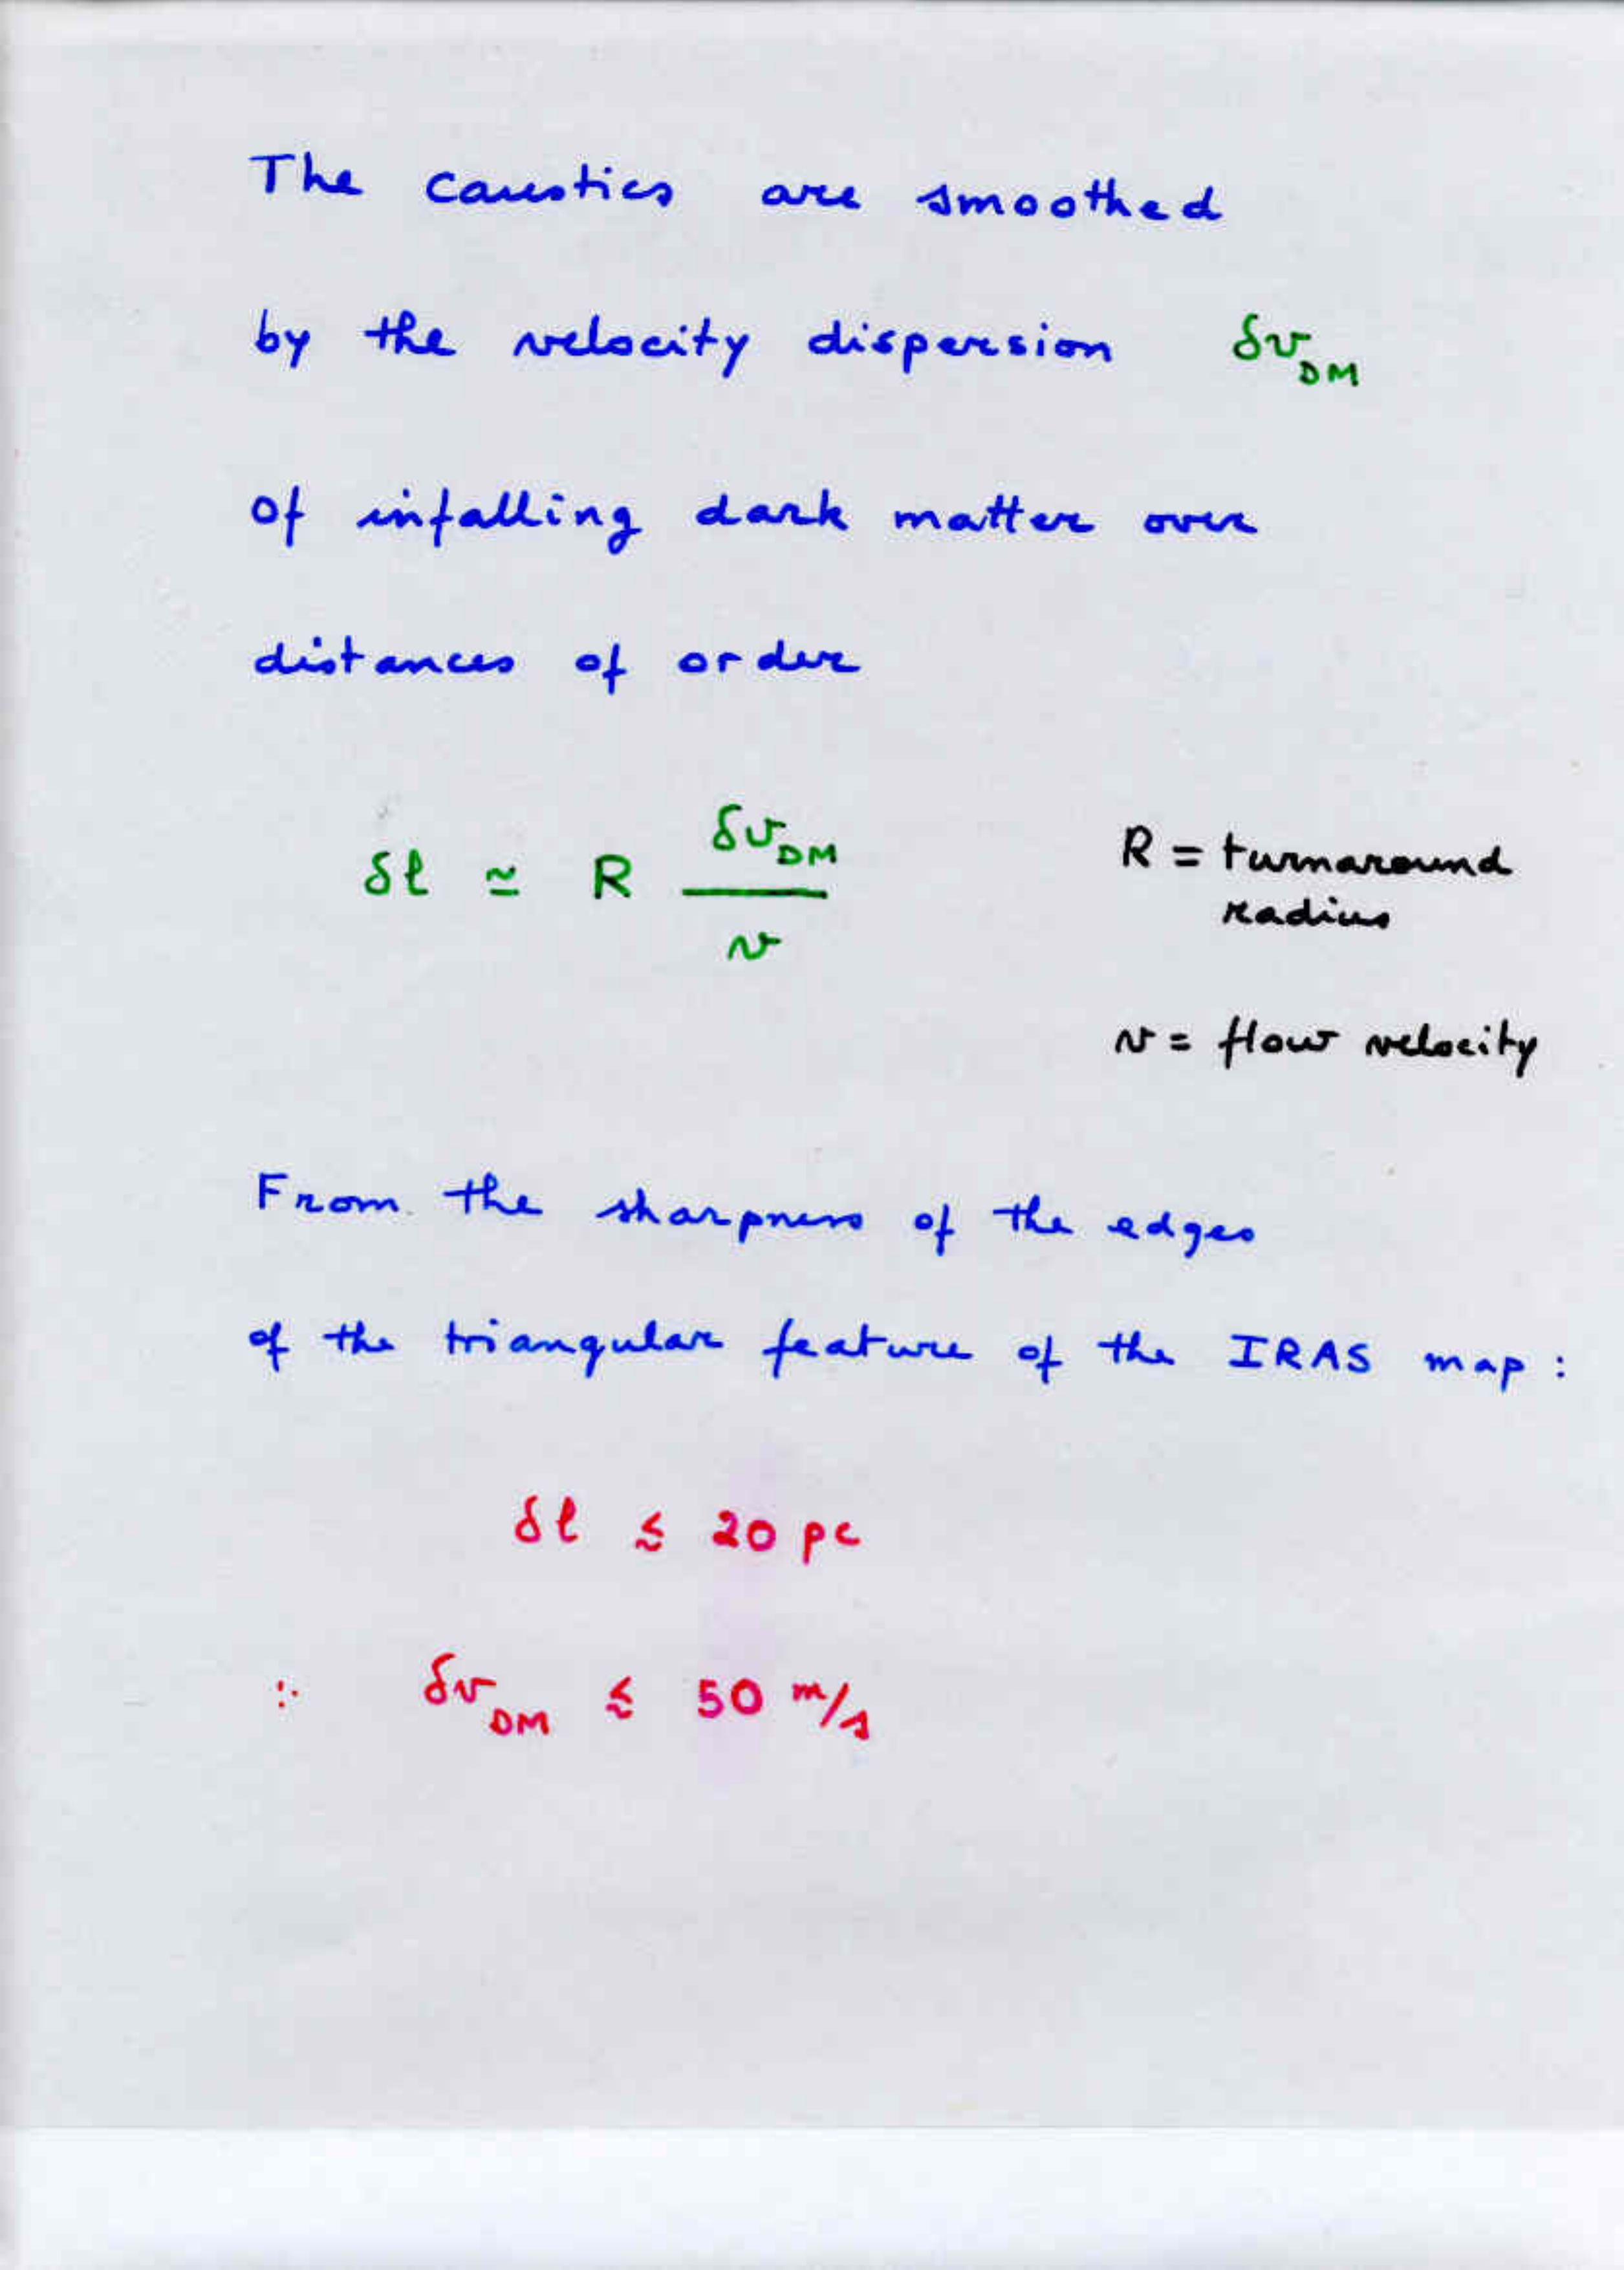 The caustics are smoothed
by the velocity dispersion δv_DM
of infalling dark matter over
distances of order
δℓ ≃ R δv_DM / v
R = turnaround
radius
v = flow velocity
From the sharpness of the edges
of the triangular feature of the IRAS map :
δℓ ≲ 20 pc
∴ δv_DM ≲ 50 m/s